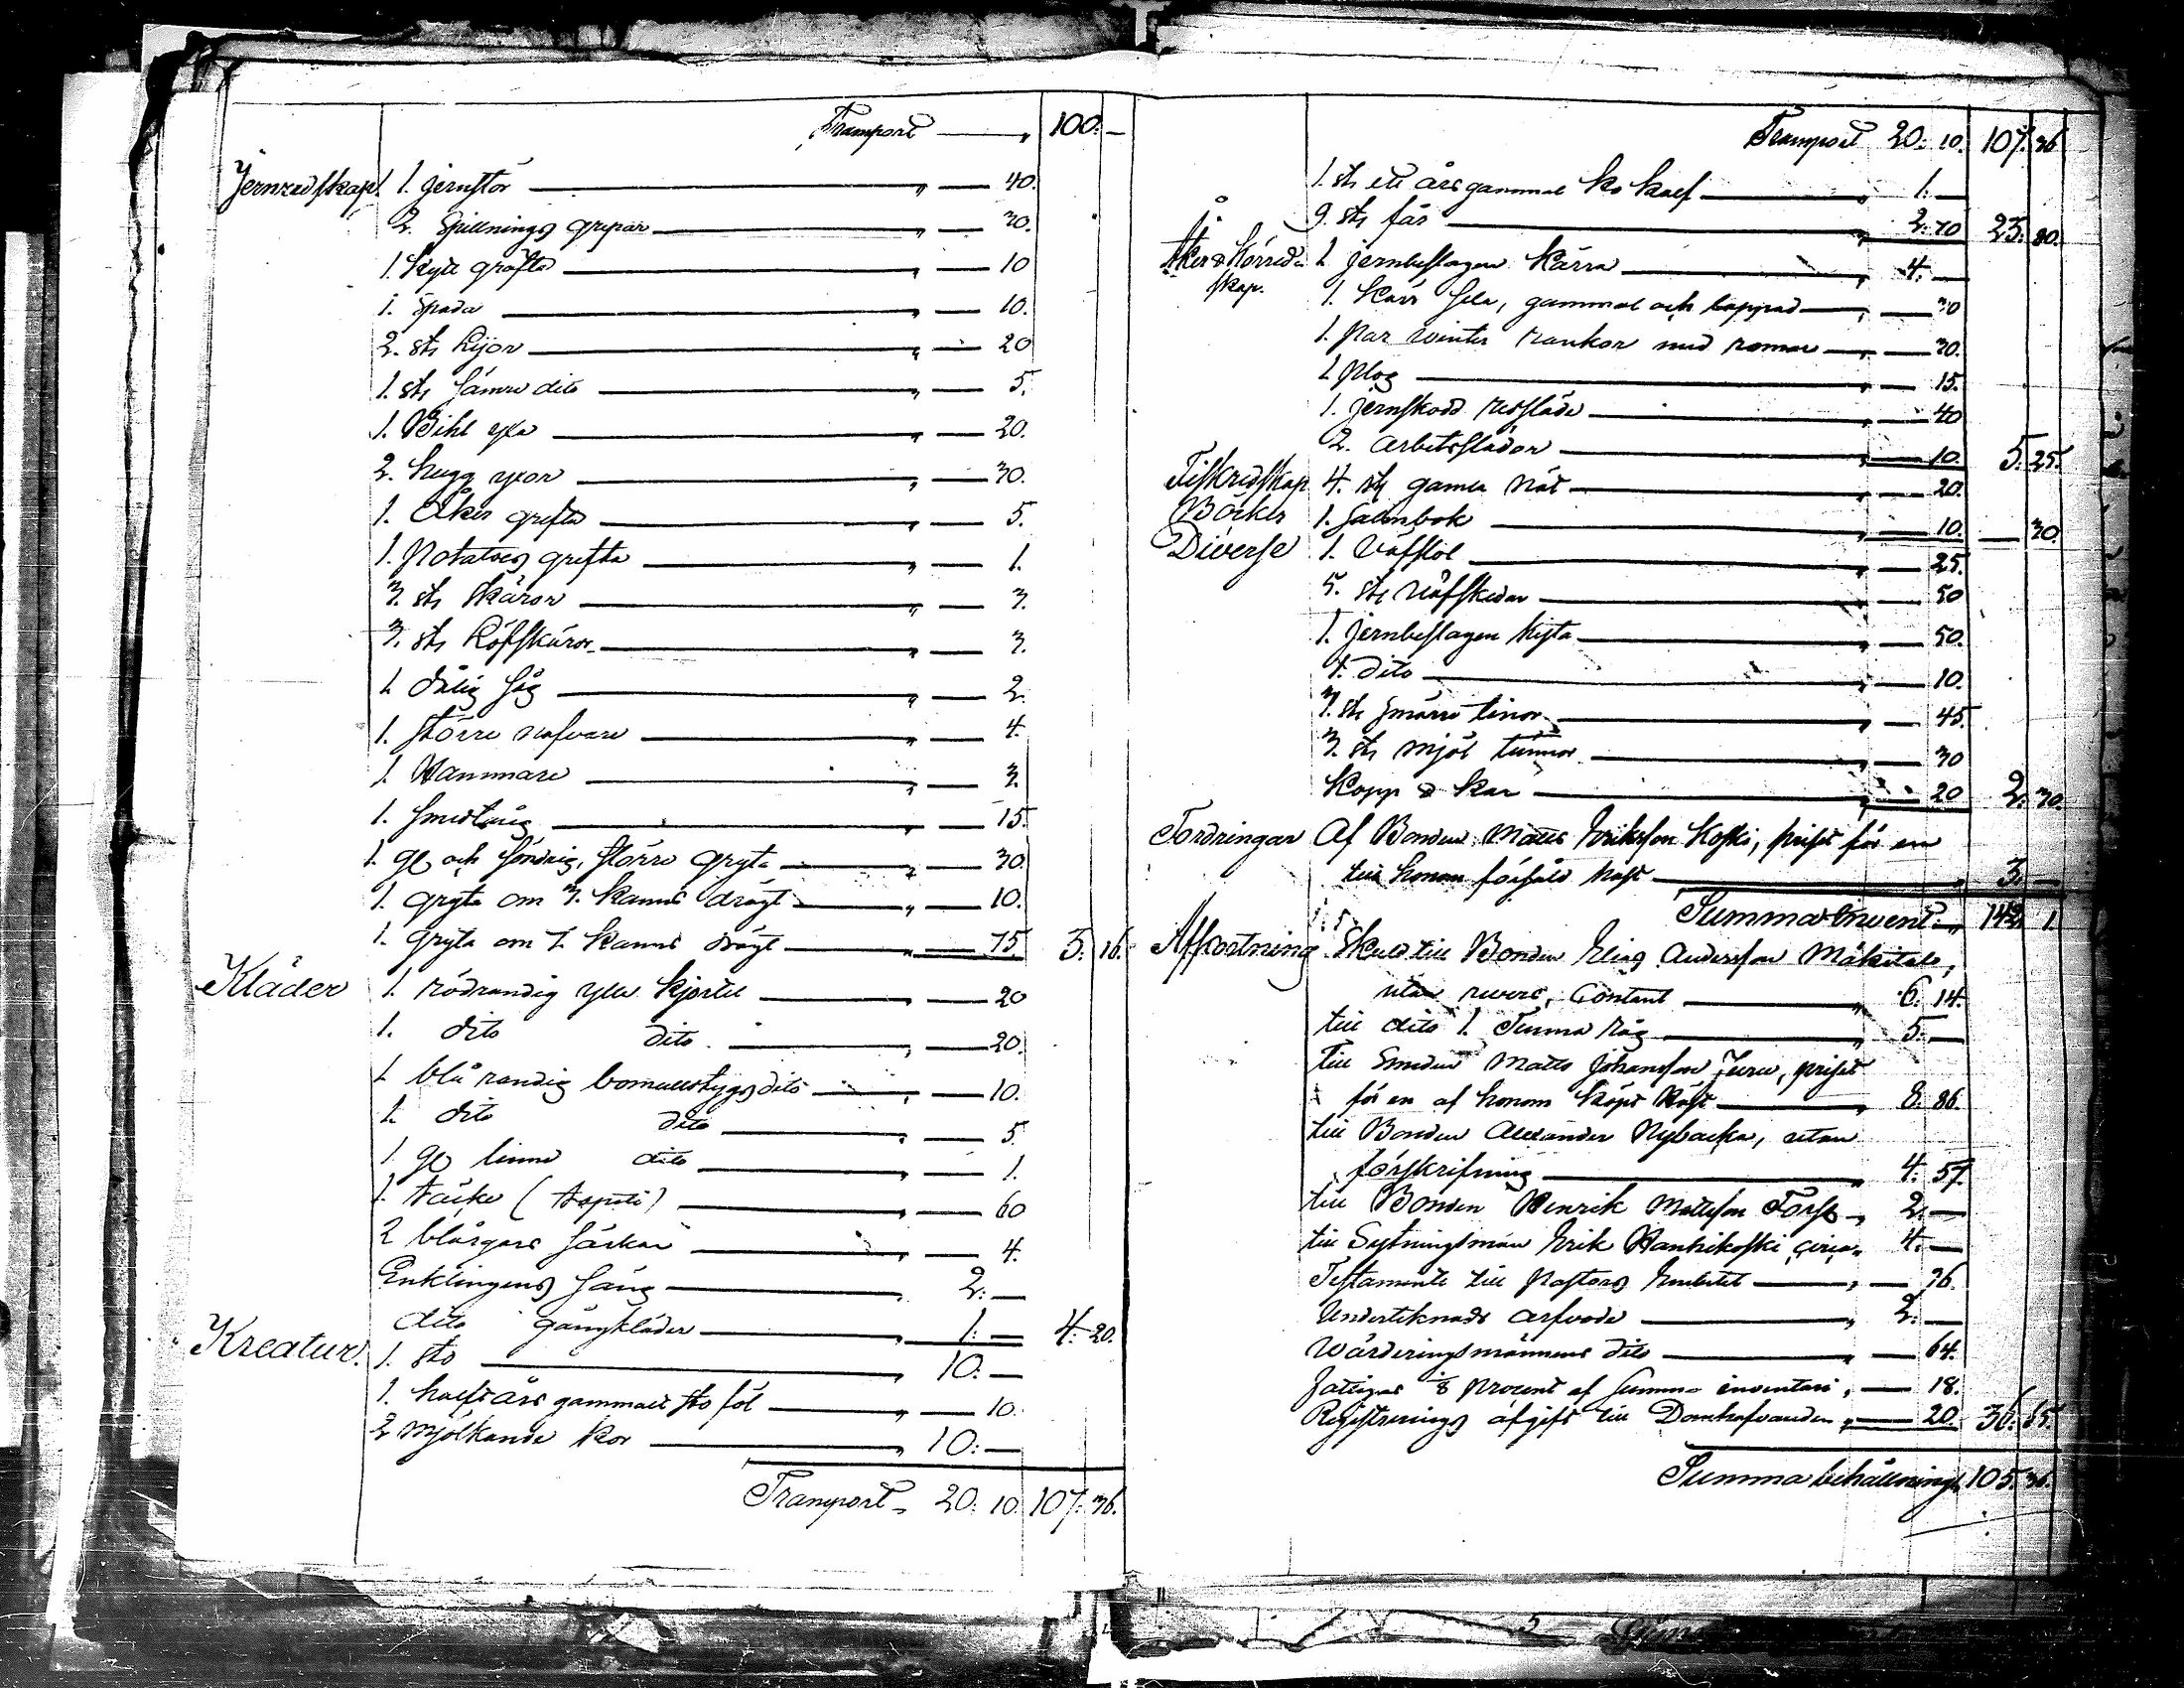 Transport — „ 100: —
Jernredskap. 1. jernstör — „ — 40.
2. Spillnings grepar — „ — 30.
1. Kytt gräfta — „ — 10
1. Spada — „ — 10.
2. sts Lijor — „ — 20
1. sts sämre dito — „ — 5.
1. Bihl yxa — „ — 20.
2. hugg yxor — „ — 30.
1. Åker grefta — „ — 5.
1. Potatoes grefta — „ — 1.
3. sts Skäror — „ — 3.
3. sts Löfskäror — „ — 3.
1. dålig såg — „ — 2.
1. större nafvare — „ — 4.
1. Hammare — „ — 3.
1. smedtång — „ — 15.
1. gl och söndrig, större gryta — „ — 30.
1. gryta om 3. kannors drägt — „ — 10.
1. gryta om 7. kannors drägt — „ — 75. 3. 16.
Kläder 1. rödrandig ylle kjortel — „ — 20
1. dito dito — „ — 20.
1. blårandig bomullstygs dito — „ — 10.
1. dito dito — „ — 5.
1. gl linne dito — „ — 1.
1. täcke (tapeti) — „ — 60
2 blårgars särkar — „ — 4.
Enklingens säng — „ 2: —
dito gångkläder — „ 1: — 4. 20.
Kreatur. 1. sto — „ 10: —
1. halft års gammalt sto föl — „ — 10.
2 mjölkande kor — „ 10: —
Transport „ 20: 10. 107: 36.
Transport 20: 10. 107. 36
1. sts ett års gammal ko kalf — „ 1. —
9. sts får — „ 2. 70 23. 80.
Åker & Körred- 1. jernbeslagen Kärra — „ 4. —
skap. 1. Kärr sela, gammal och lappad — „ — 30
1. par winter rankor med remar — „ — 30.
1. plog — „ — 15.
1. jernskodd ressläde — „ — 40
2. arbetsslädor — „ — 10. 5. 25.
Fiskredskap 4. sts gamla nät — „ — 20.
Böcker 1. Salmbok — „ — 10. — 30.
Diverse 1.Väfstol — „ — 25.
5. sts väfskedar — „ — 50
1. jernbeslagen kista — „ — 50.
1. dito — „ — 10.
3. sts smärre tinor — „ — 45.
3. sts mjöl tunnor — „ — 30
Kopp & Kar — „ — 20 2. 30.
Fordringar Af Bonden Matts Eriksson Koski, priset för en
till honom försåld häst — „ 3. —
Summa Invent. „ 142. 1.
Afkortning Skuld till Bonden Elias Andersson Mäkitalo,
utan revers, Contant — „ 6. 14.
till dito 1. Tunna råg — „ 5. —
till Smeden Matts Johansson Juru, priset
för en af honom köpt häst — „ 8. 86.
till Bonden Alexander Nybacka, utan
förskrifning — „ 4. 57.
till Bonden Henrik Mattsson Forss „ 2. —
till Sytningsman Erik Hanhikoski circa „ 4. —
Testamente till Pastors Embetet — „ — 36.
Undertecknads arfvode — „ 2. —
Wärderingsmännens dito — „ — 64.
fattigas 1/8 procent af Summa inventari „ — 18.
Registrerings afgift till Domhafvanden „ — 20. 36. 65.
Summa behållning „ 105. 36.